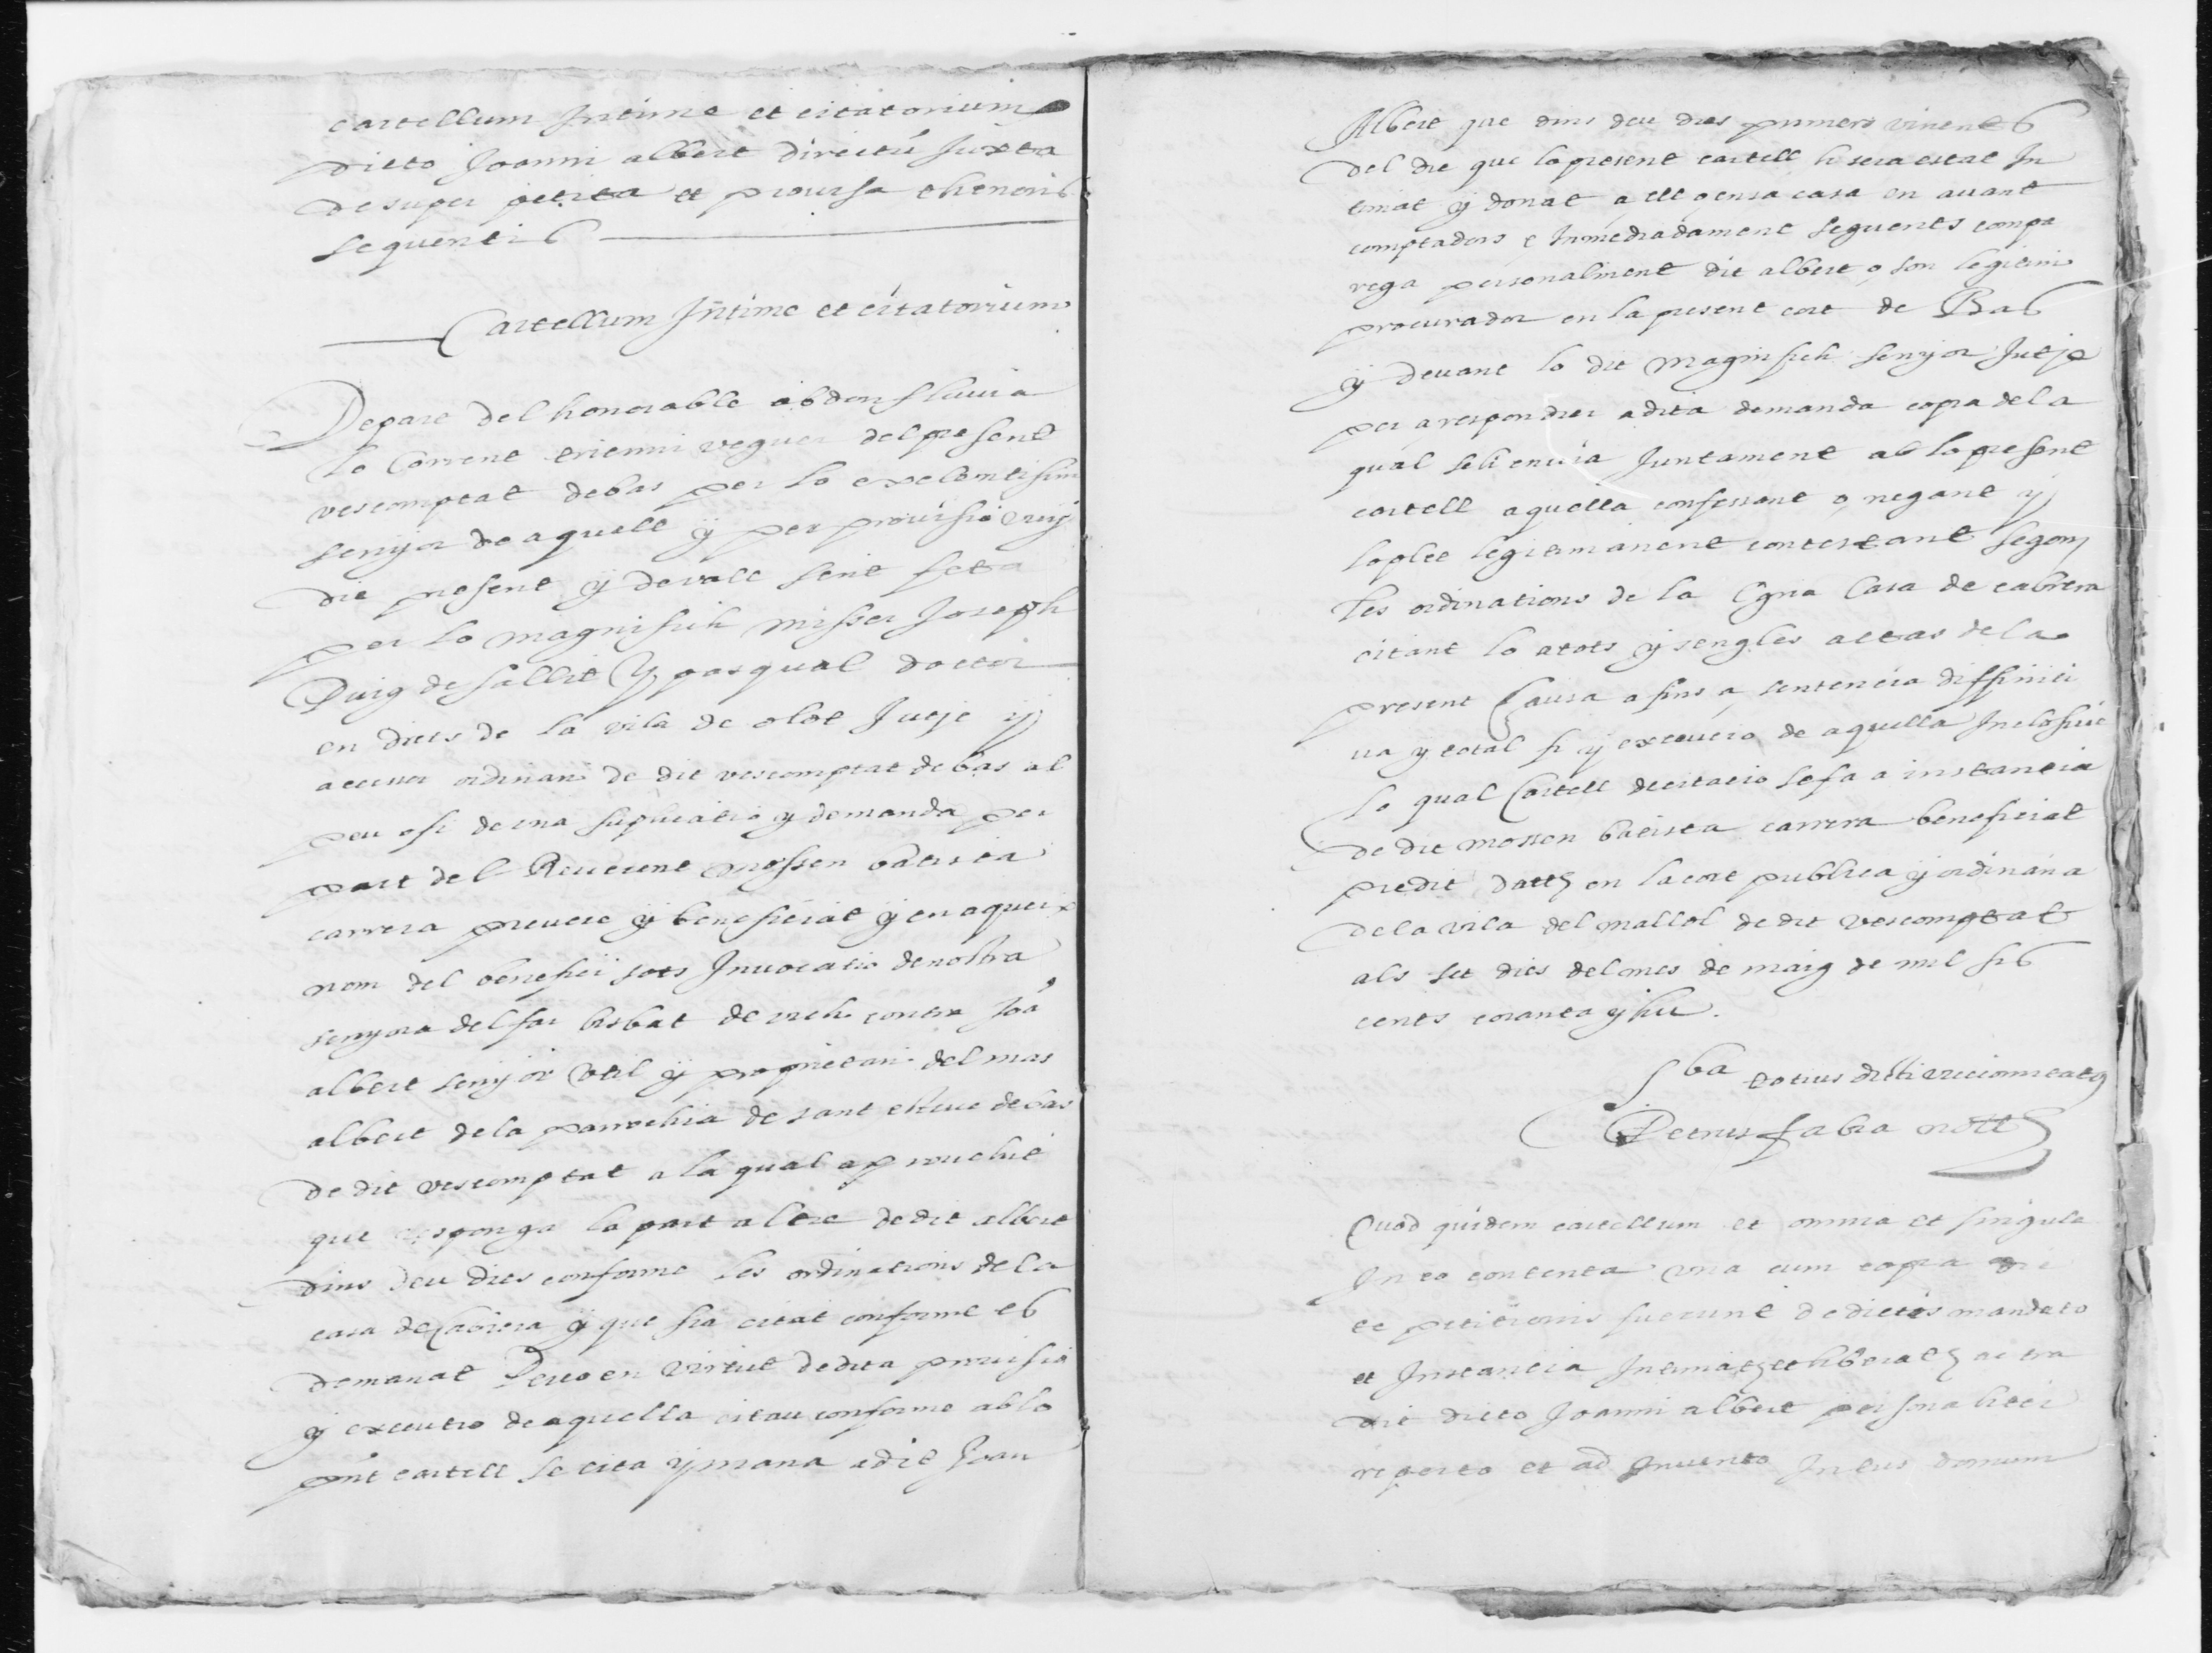 cartellum Intime et citatorium
dicto Joanni albert directū Juxta
desuper petita et provisa thenoris
sequentis
Cartellum Intime et citatorium
De part del honorable abdon fluvia
lo corrent trienni veguer del present
vescomptat debas per lo exelentisim
senyor de aquell ÿ per provisio vuy
die present ÿ devall scrit feta
per lo magnifich misser Joseph
Puig de sallit y pasqual doctor
en drets de la vila de olot Jutje ÿ
acessor ordinari de dit vescomptat debas al
peu ofi de una suplicatio y demanda per
part del Reverent mossen batista
carrera prevere ÿ beneficiat ÿ en aqueix
nom del benefici sots Invocatio de nostra
senyora del far bisbat de vich contra Joā
albert senyor util ÿ proprietari del mas
albert dela parrochia de sant esteve debas
de dit vescomptat a la qual
que responga la part altre de dit albert
dins deu dies conforme les ordinations de la
casa de cabrera ÿ que sia citat conforme es
demanat Perço en virtut de dita provisio
y executio de aquella citau conforme ab lo
pñt cartell se cita y mana a dit Joan
Albert que dins deu dies primers vinents
del die que lo present cartell li sera estat In
timat y donat a ell o en sa casa en avant
comptadors e Inmediadament seguents compa
rega personalment dit albert o son legitim
procurador en la present cort de Bas
ÿ devant lo dit magnifich senyor Jutje
per a respondrer a dita demanda copia dela
qual seli envia Juntament ab lo present
cartell aquella confessant o negant y
lo plet legitimament contestant segons
les ordinations de la Casa de cabrera
citant lo a tots y sengles actas dela
present Causa afins a sentencia diffiniti
va y total fi y executio de aquella Inclosive
lo qual Cartell de citatio se fa a instancia
de dit mossen batista carrera beneficiat
predit datt en la cort publica y ordinaria
dela vila del mallol de dit vescomptat
als set dies del mes de maig de mil sis
cents coranta y hu.
Sba totius dicti vicecomitatus
Petrus fabra nott
Quod quidem cartellum et omnia et singula
In eo contenta una cum copia
petitionis fuerunt de dictis mandato
et Instancia Intimat et liberat ac tra
dit dicto Joanni albert personaliter
reperto et ad Invento Intus domum